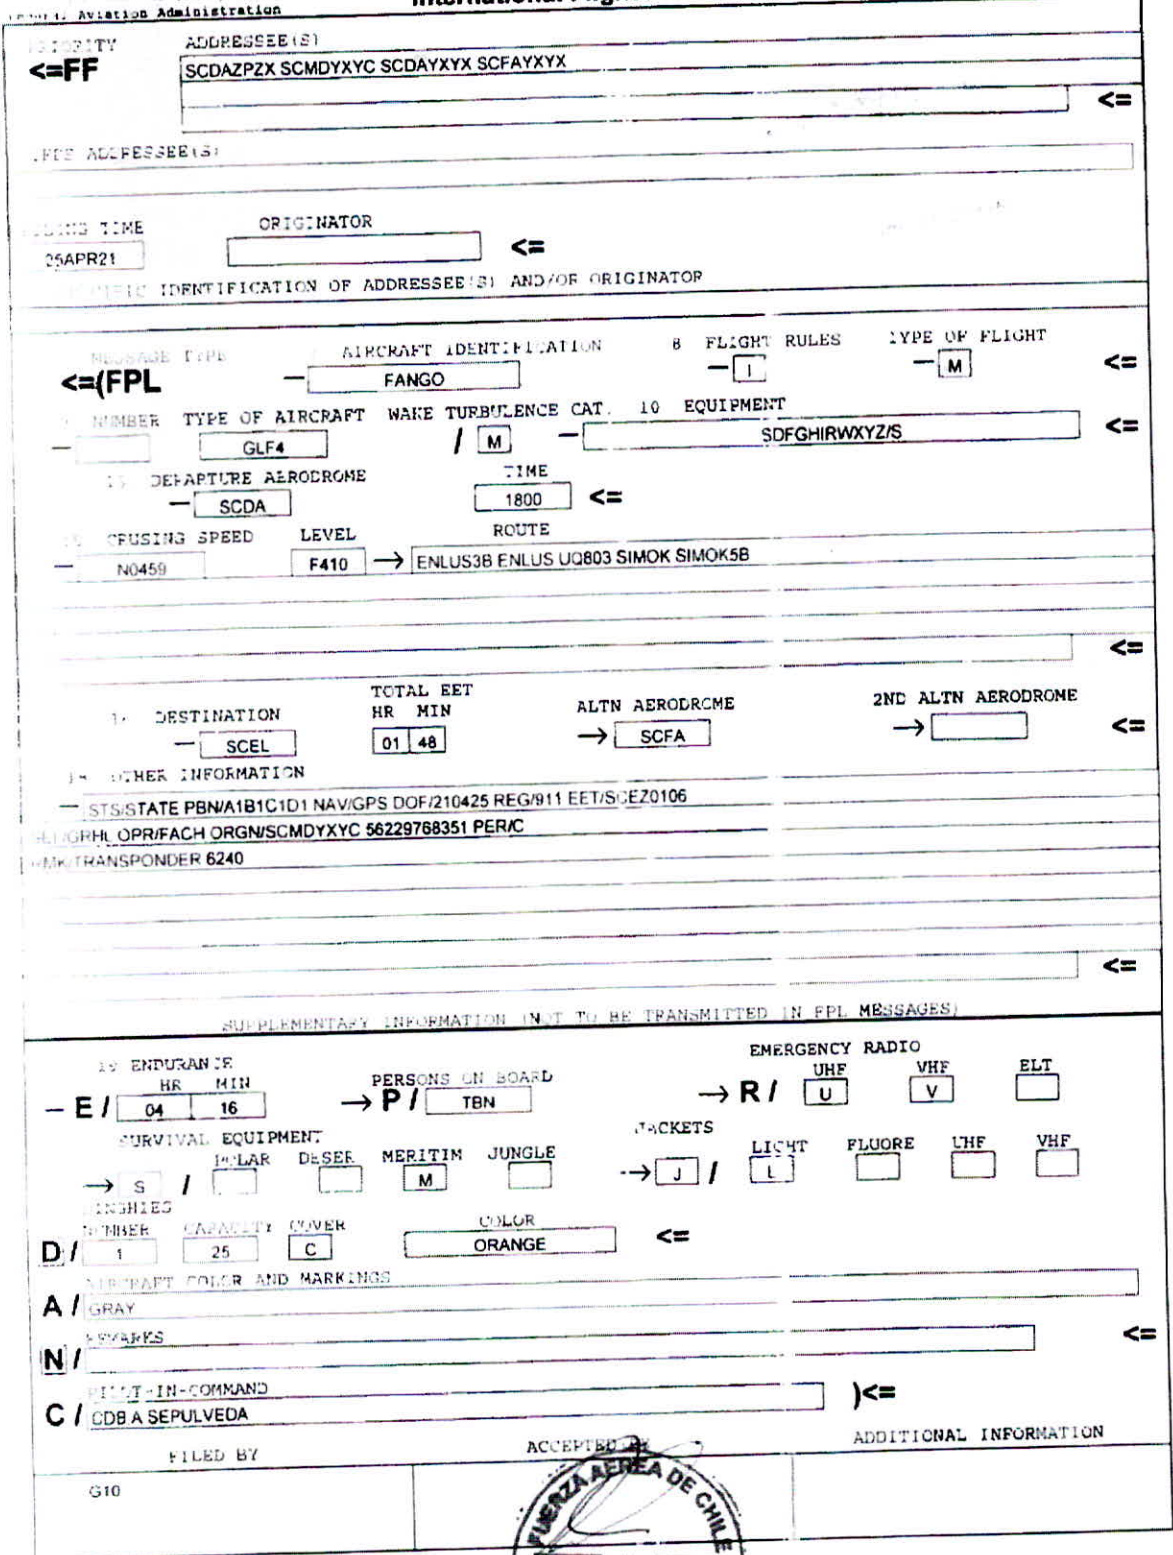 Aviation Administration
ADDRESSEE(S)
<=FF SCDAZPZX SCMDYXYC SCDAYXYX SCFAYXYX
<=
ADDRESSEE(S)
TIME ORIGINATOR
25APR21 <=
IDENTIFICATION OF ADDRESSEE(S) AND/OR ORIGINATOR
MESSAGE TYPE AIRCRAFT IDENTIFICATION 8 FLIGHT RULES TYPE OF FLIGHT
<=(FPL — FANGO — I — M <=
NUMBER TYPE OF AIRCRAFT WAKE TURBULENCE CAT. 10 EQUIPMENT
— GLF4 / M — SDFGHIRWXYZ/S <=
DEPARTURE AERODROME TIME
— SCDA 1800 <=
CRUSING SPEED LEVEL ROUTE
— N0459 F410 → ENLUS3B ENLUS UQ803 SIMOK SIMOK5B
<=
TOTAL EET
DESTINATION HR MIN ALTN AERODROME 2ND ALTN AERODROME
— SCEL 01 48 → SCFA → <=
OTHER INFORMATION
— STS/STATE PBN/A1B1C1D1 NAV/GPS DOF/210425 REG/911 EET/SCEZ0106
OPR/FACH ORGN/SCMDYXYC 56229768351 PER/C
TRANSPONDER 6240
<=
SUPPLEMENTARY INFORMATION (NOT TO BE TRANSMITTED IN FPL MESSAGES)
19 ENDURANCE EMERGENCY RADIO
HR MIN PERSONS ON BOARD UHF VHF ELT
— E / 04 16 → P / TBN → R / U V
SURVIVAL EQUIPMENT JACKETS
POLAR DESER MERITIM JUNGLE LIGHT FLUORE UHF VHF
→ S / M → J / L
DINGHIES
NUMBER CAPACITY COVER COLOR
D / 1 25 C ORANGE <=
AIRCRAFT COLOR AND MARKINGS
A / GRAY
REMARKS
N / <=
PILOT-IN-COMMAND
C / CDB A SEPULVEDA )<=
FILED BY ACCEPTED BY ADDITIONAL INFORMATION
G10
FUERZA AEREA DE CHILE